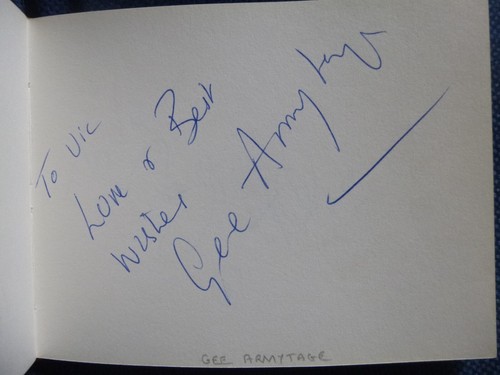 To Vic
Love & Best
Wishes
Gee Armytage
GEE ARMYTAGE